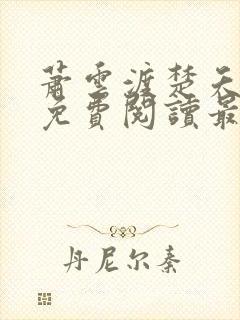 蕭雲渡楚天
免費閱讀最
丹尼尔秦